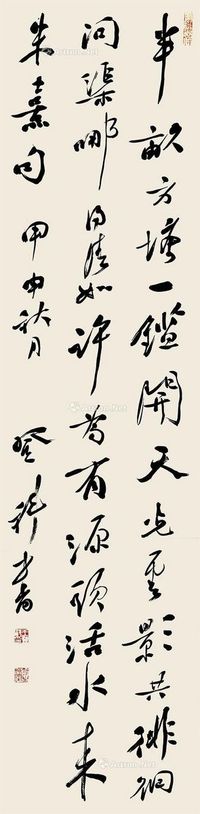 半畝方塘一鑑開天光雲影共徘徊
問渠哪得清如許為有源頭活水来
朱熹句 甲申秋月 書